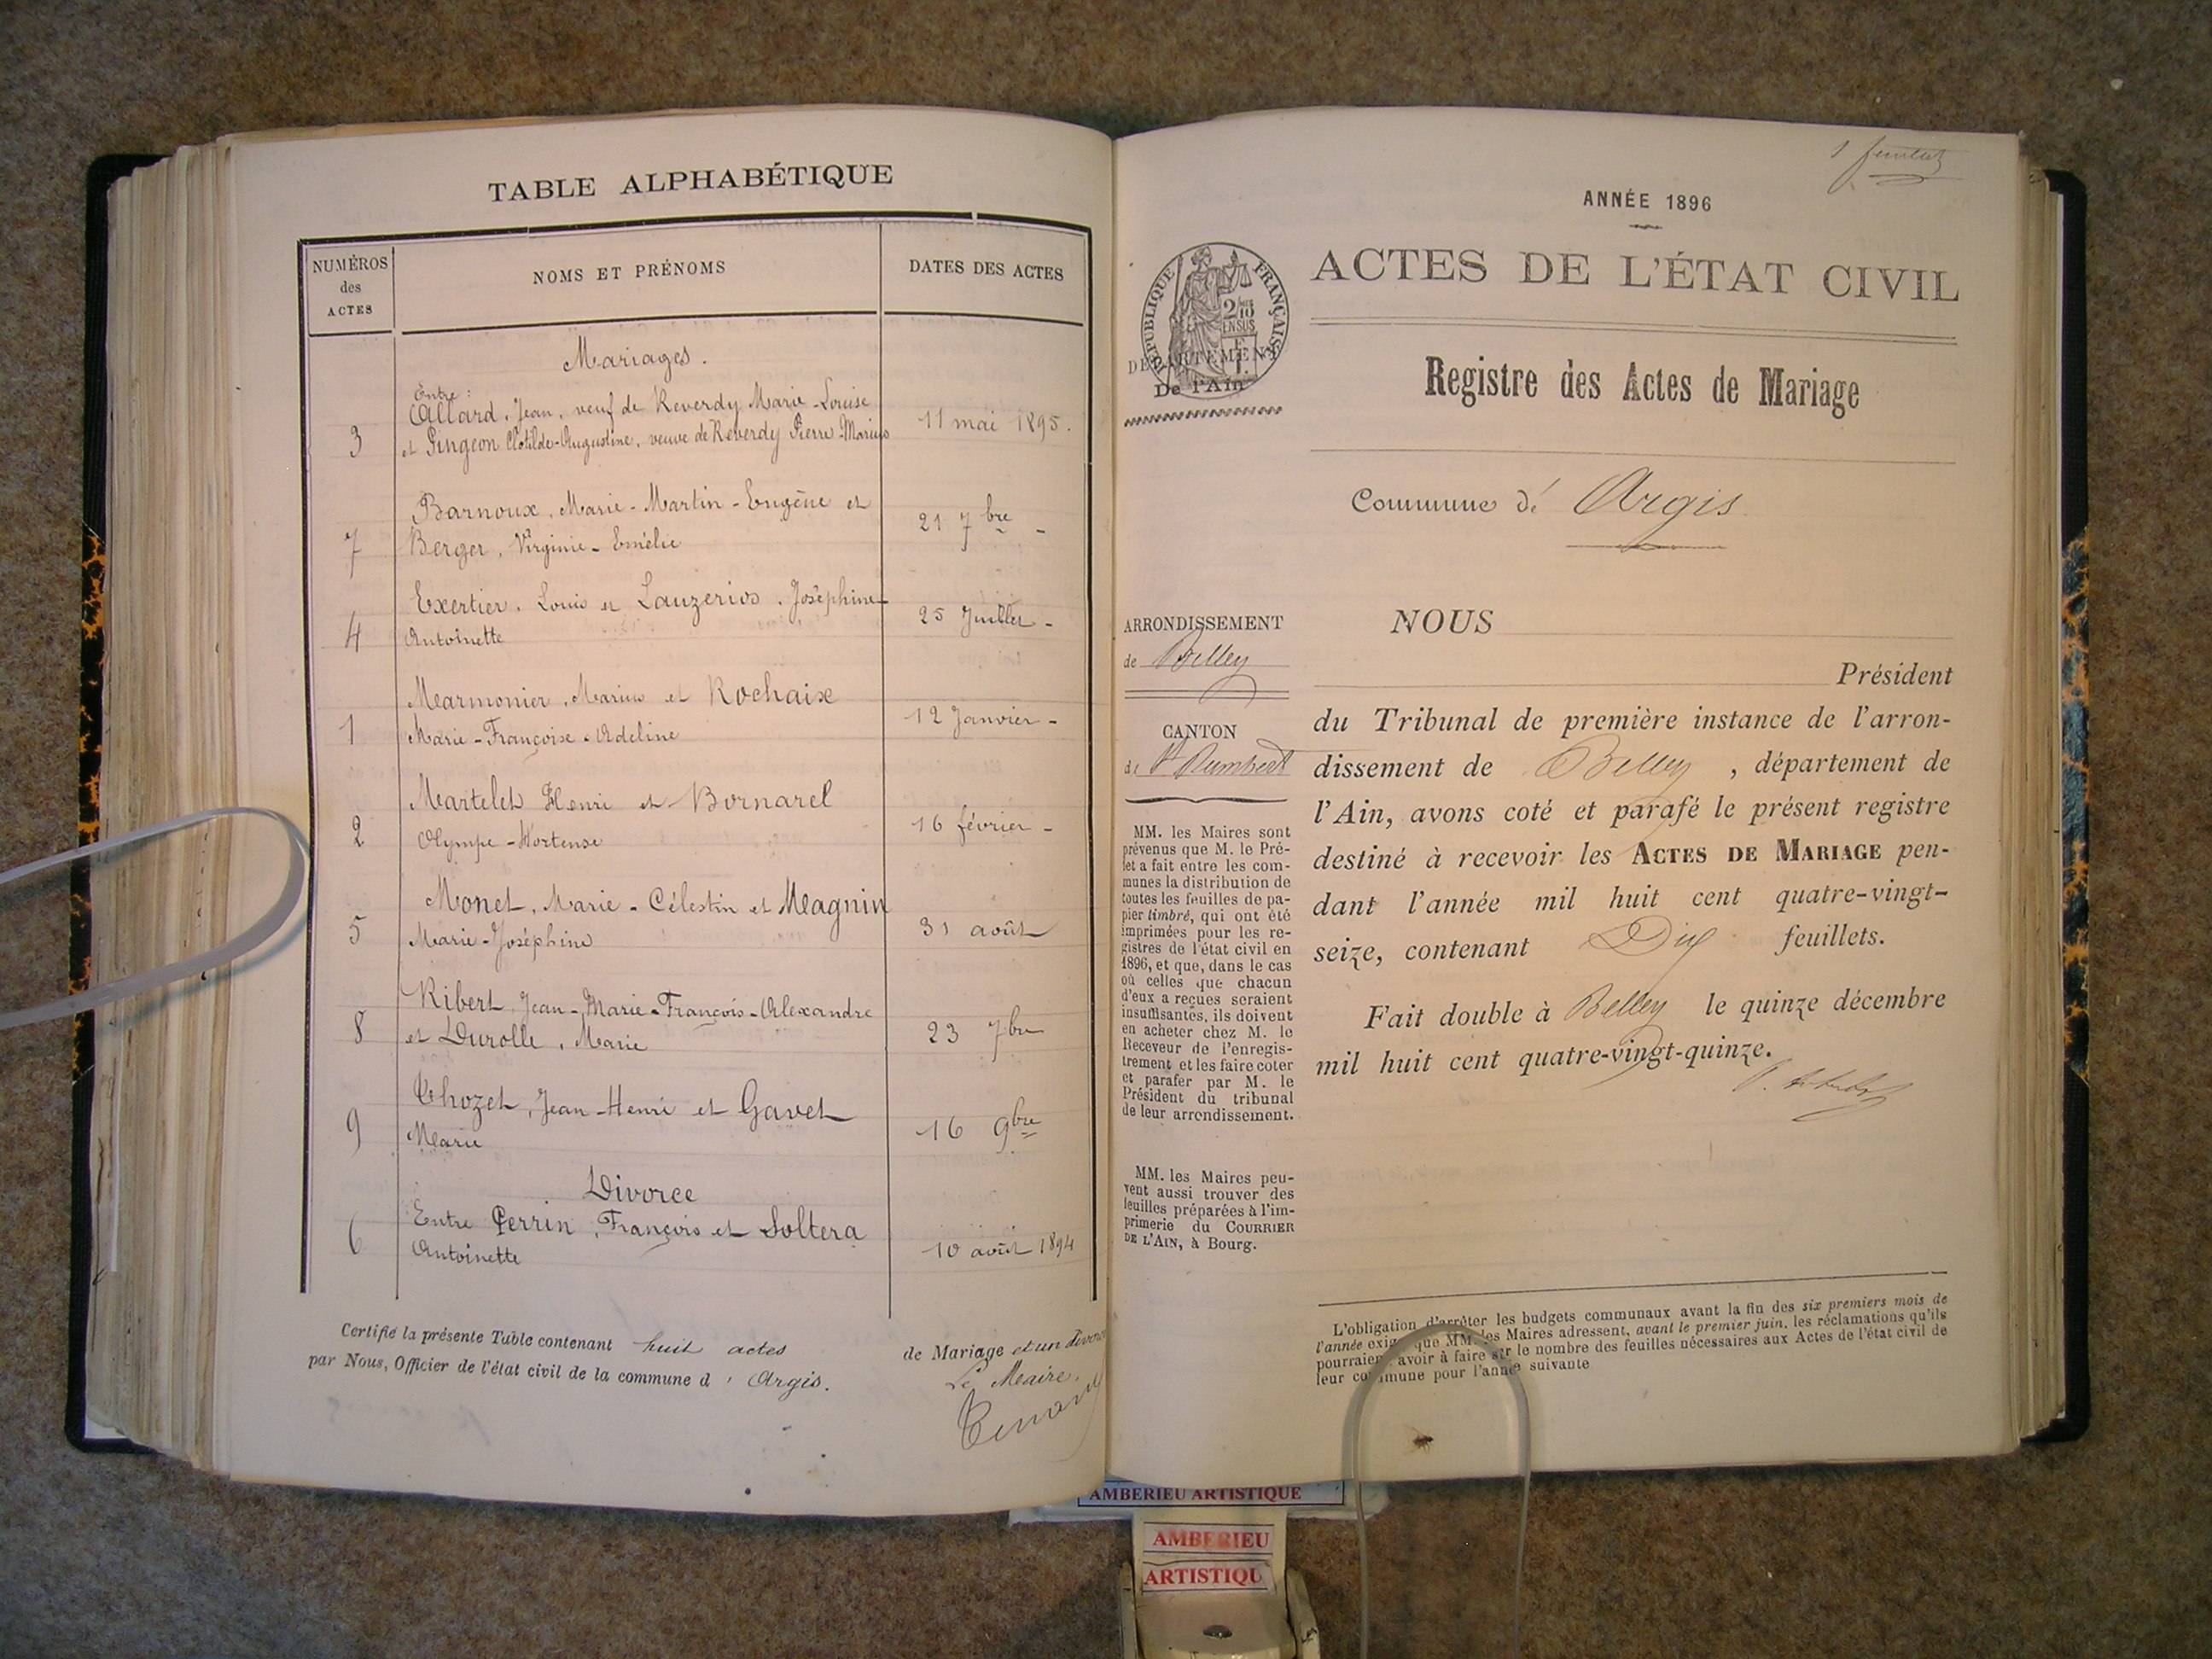 TABLE ALPHABÉTIQUE
NUMÉROS
des
ACTES
NOMS ET PRÉNOMS
DATES DES ACTES
Mariages.
Entre :
Allard, Jean, veuf de Reverdy Marie-Louise
3 et Pingeon Clotilde-Augustine, veuve de Reverdy Pierre-Marius 11 mai 1895.
Barnoux, Marie-Martin-Eugène et
7 Berger, Virginie-Emélie 21 7bre -
Exertier, Louis et Lauzerios, Joséphine-
4 Antoinette 25 Juillet -
Marmonier, Marius et Rochaix
1 Marie-Françoise-Adeline 12 Janvier -
Martelet Henri et Bornarel
2 Olympe-Hortense 16 février -
Monet, Marie-Célestin et Magnin
5 Marie-Joséphine 31 août
Ribert Jean-Marie-François-Alexandre
8 et Durolle, Marie 23 7bre
Chozet, Jean-Henri et Gavet
9 Marie 16 9bre
Divorce
Entre Perrin, François et Soltera
6 Antoinette 10 août 1894
Certifié la présente Table contenant huit actes de Mariage et un divorce
par Nous, Officier de l'état civil de la commune d' Argis.
Le Maire,
1 feuillet
ANNÉE 1896
RÉPUBLIQUE FRANÇAISE
2/10
EN SUS
DÉPARTEMENT
De l'Ain
ACTES DE L'ÉTAT CIVIL
Registre des Actes de Mariage
Commune d' Argis
ARRONDISSEMENT
de Belley
CANTON
de St Rambert
MM. les Maires sont
prévenus que M. le Pré-
fet a fait entre les com-
munes la distribution de
toutes les feuilles de pa-
pier timbré, qui ont été
imprimées pour les re-
gistres de l'état civil en
1896, et que, dans le cas
où celles que chacun
d'eux a reçues seraient
insuffisantes, ils doivent
en acheter chez M. le
Receveur de l'enregis-
trement et les faire coter
et parafer par M. le
Président du tribunal
de leur arrondissement.
MM. les Maires peu-
vent aussi trouver des
feuilles préparées à l'im-
primerie du COURRIER
DE L'AIN, à Bourg.
NOUS
Président
du Tribunal de première instance de l'arron-
dissement de Belley, département de
l'Ain, avons coté et parafé le présent registre
destiné à recevoir les ACTES DE MARIAGE pen-
dant l'année mil huit cent quatre-vingt-
seize, contenant Dix feuillets.
Fait double à Belley le quinze décembre
mil huit cent quatre-vingt-quinze.
L'obligation d'arrêter les budgets communaux avant la fin des six premiers mois de
l'année exige que MM. les Maires adressent, avant le premier juin, les réclamations qu'ils
pourraient avoir à faire sur le nombre des feuilles nécessaires aux Actes de l'état civil de
leur commune pour l'année suivante
AMBERIEU ARTISTIQUE
AMBERIEU
ARTISTIQU